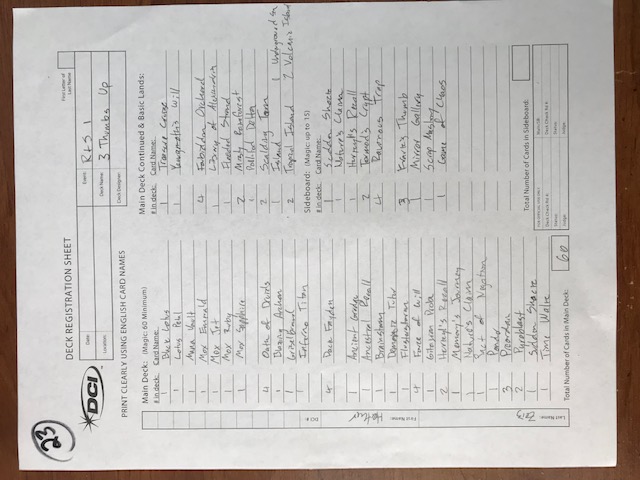 23
DECK REGISTRATION SHEET
First Letter of
Last Name:
DCI
Date:
Event: R+S 1
Location:
Deck Name: 3 Thumbs Up
Deck Designer:
PRINT CLEARLY USING ENGLISH CARD NAMES
DCI #:
First Name: Hather
Last Name:
Main Deck: (Magic: 60 Minimum)
# in deck: Card Name:
1 Black Lotus
1 Lotus Petal
1 Mana Vault
1 Mox Emerald
1 Mox Jet
1 Mox Ruby
1 Mox Sapphire
4 Oath of Druids
1 Blazing Archon
1 Griselbrand
1 Inferno Titan
4 Dack Fayden
1 Ancient Grudge
1 Ancestral Recall
1 Brainstorm
1 Demonic Tutor
1 Flusterstorm
4 Force of Will
1 Gitaxian Probe
2 Hurkyl's Recall
1 Memory's Journey
1 Nature's Claim
1 Pact of Negation
1 Ponder
3 Preordain
2 Pyroblast
1 Sudden Shock
1 Time Walk
Total Number of Cards in Main Deck: 60
Main Deck Continued & Basic Lands:
# in deck: Card Name:
1 Treasure Cruise
1 Yawgmoth's Will
4 Forbidden Orchard
1 Library of Alexandria
1 Flooded Strand
2 Misty Rainforest
1 Polluted Delta
2 Scalding Tarn
1 Island 1 Underground Sea
2 Tropical Island 2 Volcanic Island
Sideboard: (Magic: up to 15)
# in deck: Card Name:
1 Sudden Shock
1 Nature's Claim
1 Hurkyl's Recall
2 Tormod's Crypt
4 Ravenous Trap
3 Krark's Thumb
1 Mirror Gallery
1 Scrap Mastery
1 Game of Chaos
Total Number of Cards in Sideboard:
FOR OFFICIAL USE ONLY
Main/SB:
Deck Check Rd #:
Deck Check Rd #:
Status:
Status:
Judge:
Judge: